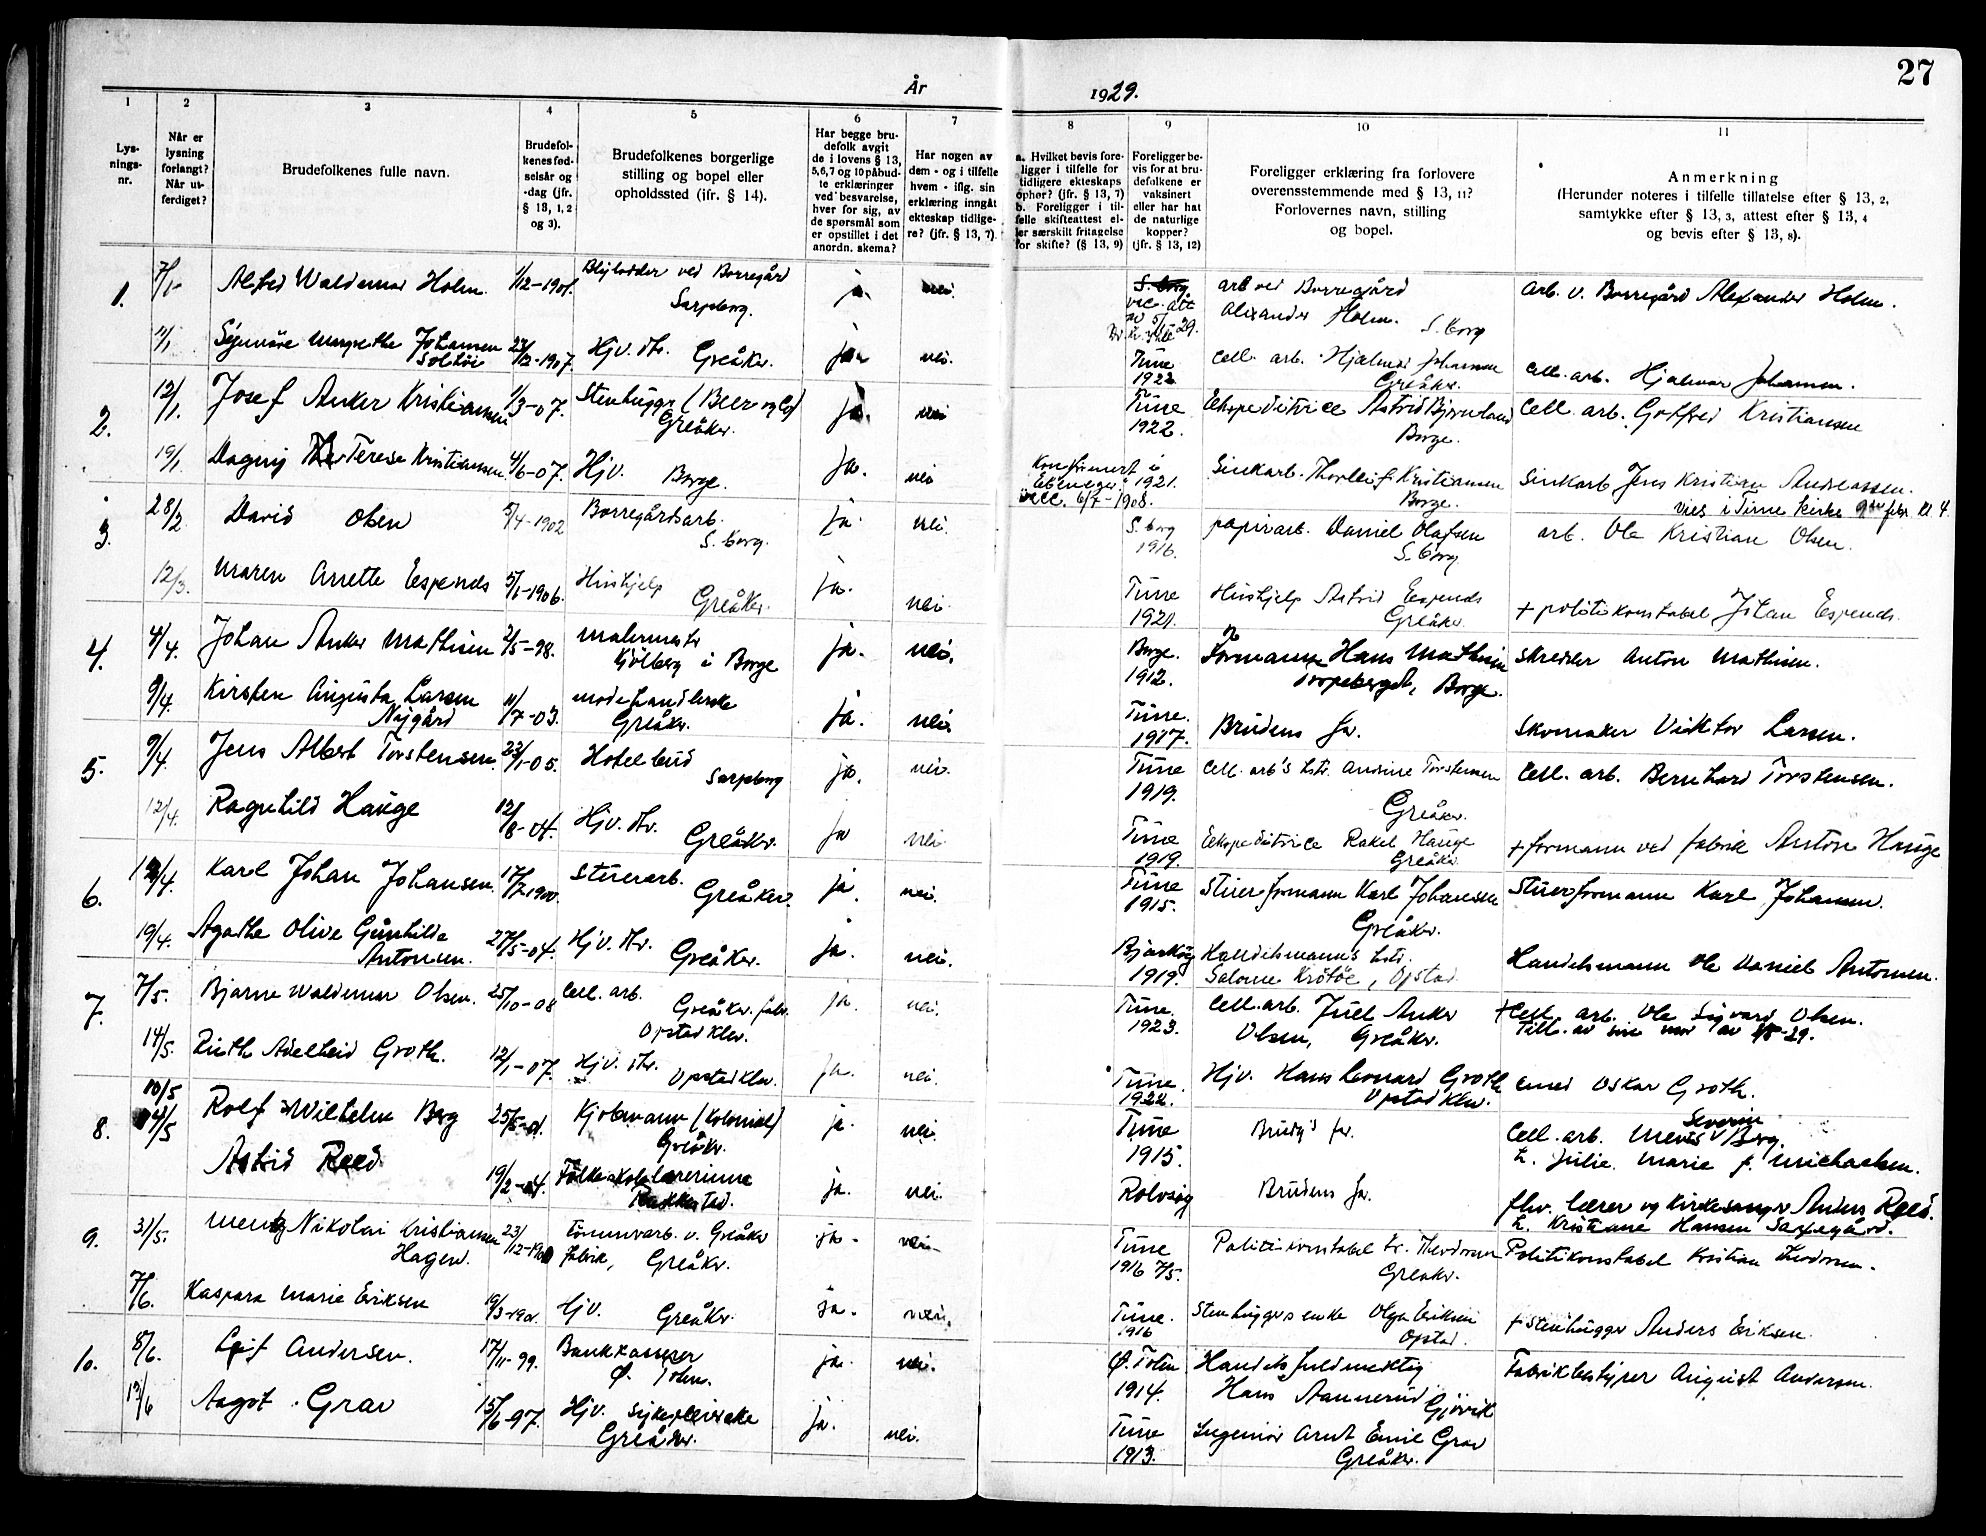 27
År 1929.
1 2 3 4 5 6 7 8 9 10 11
Lys-
nings-
nr.
Når er
lysning
forlangt?
Når ut-
ferdiget?
Brudefolkenes fulle navn.
Brudefol-
kenes fød-
selsår og
-dag (jfr.
§ 13, 1, 2
og 3).
Brudefolkenes borgerlige
stilling og bopel eller
opholdssted (ifr. § 14).
Har begge bru-
defolk avgit
de i lovens § 13,
5,6,7 og 10 påbud-
te erklæringer
ved besvarelse,
hver for sig, av
de spørsmål som
er opstillet i det
anordn. skema?
Har nogen av
dem - og i tilfelle
hvem - iflg. sin
erklæring inngåt
ekteskap tidlige-
re? (jfr. § 13, 7).
a. Hvilket bevis fore-
ligger i tilfelle for
tidligere ekteskaps
ophør? (jfr. § 13, 7)
b. Foreligger i til-
felle skifteattest el-
ler særskilt fritagelse
for skifte? (§ 13, 9)
Foreligger be-
vis for at bru-
defolkene er
vaksinert
eller har hat
de naturlige
kopper?
(jfr. § 13, 12)
Foreligger erklæring fra forlovere
overensstemmende med § 13, 11?
Forlovernes navn, stilling
og bopel.
Anmerkning
(Herunder noteres i tilfelle tillatelse efter § 13, 2,
samtykke efter § 13, 3, attest efter § 13, 4
og bevis efter § 13, 8).
1. 7/1 Alfred Waldemar Holm. 1/12-1901. Blylodder ved Borregård
Sarpsborg. ja. nei. S. borg
vac. att
av 5/1-29. arb ved Borregård
Alexander Holm. S. borg Arb. v. Borregård Alexander Holm.
11/1 Synnöve Margrethe Johansen
Soltöi 23/12-1907. Hjv. dtr. Greåker. ja nei. Tune
1922 Cell. arb. Hjalmar Johansen
Greåker. Cell. arb. Hjalmar Johansen.
2. 12/1. Josef Anker Kristiansen 1/3-07. Stenhugger (Beer og Co)
Greåker. ja. nei Tune
1922. Ekspeditrice Astrid Bjørnland
Borge. Cell. arb. Gotfred Kristiansen
19/1 Dagny Terese Kristiansen 4/6-07. Hjv. Borge. ja. nei Konfirmert i
Ebeneser 1921.
vacc. 6/7-1908. Sinkarb. Thorleif Kristiansen
Borge. Sinkarb Jens Kristian Andreassen.
Vies i Tune Kirke 9de febr. kl 4.
3. 28/2 David Olsen 5/4-1902 Borregårdsarb.
S. borg. ja nei. S. borg
1916. papirarb. Daniel Olafsen
S. borg arb. Ole Kristian Olsen.
12/3. Maren Anette Espenes 5/1-1906. Hushjelp
Greåker. ja. nei. Tune
1921. Hushjelp Astrid Espenes
Greåker. + politikonstabel Johan Espenes.
4. 4/4. Johan Anker Mathisen 2/5-98. Malermester
Kjölberg i Borge ja. nei. Borge.
1912. Formann Hans Mathisen
Torpeberget, Borge. Skredder Anton Mathisen.
9/4. Kirsten Augusta Larsen
Nygård 11/7-03. Modehandlerske
Greåker. ja. nei. Tune.
1917. Brudens far. Skomaker Viktor Larsen.
5. 9/4. Jens Albert Torstensen. 23/1-05. Hotelbud
Sarpsborg ja. nei. Tune
1919. Cell. arb's hstr. Andrine Torstensen
Greåker. Cell. arb. Bernhard Torstensen.
12/4. Ragnhild Hauge 12/8-04. Hjv. dtr. Greåker. ja nei. Tune
1919. Ekspeditrice Rakel Hauge
Greåker + formann ved fabrik Anton Hauge
6. 12/4. Karl Johan Johansen. 17/7 1900. Stuerarb.
Greåker. ja. nei. Tune
1915. Stuerformann Karl Johansen
Greåker. Stuerformann Karl Johansen.
19/4. Agathe Olive Gunhilde
Antonsen. 27/5-04. Hjv. dtr.
Greåker. ja. nei. Bjarköy
1919. Handelsmanns hstr.
Salome Krötöe, Opstad. Handelsmann Ole Daniel Antonsen.
7. 7/5. Bjarne Waldemar Olsen. 25/10-08 Cell. arb.
Greåker fabr.
Opstadklev. ja. nei. Tune.
1923. Cell. arb. Juel Anker
Olsen, Greåker. + Cell. arb. Ole Sigvard Olsen.
Till. av sin mor av
14/5. Ruth Adelheid Groth. 12/1-07. Hjv. dtr.
Opstadklev. ja. nei. Tune.
1922. Hjv. Hans Leonard Groth
Opstadklev. Smed Oskar Groth.
8. 10/5
14/5 Rolf Wilhelm Berg 25/5-01. Kjøbmann (Kolonial)
Greåker. ja. nei. Tune
1915. Brudg's far. Cell. arb. Severin Berg.
h. Julie Marie f. Michaelsen.
Astrid Reed. 19/2-04. Folkeskolelærerinne
Rakkestad. ja. nei. Rolvsöy Brudens far. fhv. lærer og kirkesanger Anders Reed.
h. Kristiane Hansen
9. 31/5. Mentz Nikolai Kristiansen
Hagen. 23/12-19 Tömmerarb. v. Greåker
fabrik, Greåker. ja. nei. Tune
1916 7/5. Politikonstabel Kr. Theodorsen
Greåker. Politikonstabel Kristian Teodorsen.
7/6. Kaspara Marie Eriksen 19/3-1901 Hjv. Greåker. ja. nei. Tune.
1916 Stenhuggersenke Olga Eriksen
Opstad. + Stenhugger Anders Eriksen.
10. 8/6. Leif Andersen. 17/11-99. Bankkasserer
Ø. Toten. ja. nei. Ø. Toten
1914. Handelsfuldmektig
Hans Aannerud Gjövik Fabrikbestyrer August Andersen.
13/6 Aagot Grav 15/6-97. Hjv. Sykepleierske
Greåker. ja. nei. Tune
1913. Ingeniör Arnt Emil Grav
Greåker.